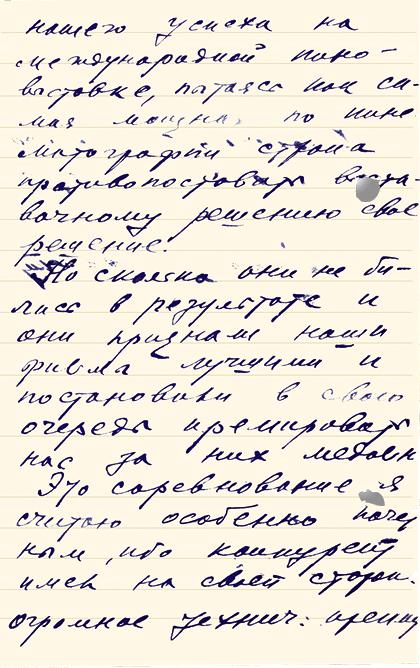 нашего успеха на
международной кино-
выставке, пытаясь как са-
мая мощная по кине-
матографии страна
противопоставить выста-
вочному решению свое
решение.
Но сколько они не би-
лись в результате и
они признали наши
фильма лучшими и
постановили в свою
очередь премировать
нас за них медалью
Это соревнование я
считаю особенно почет
ным, ибо конкурент
имел на своей сторон.
огромное технич: преим